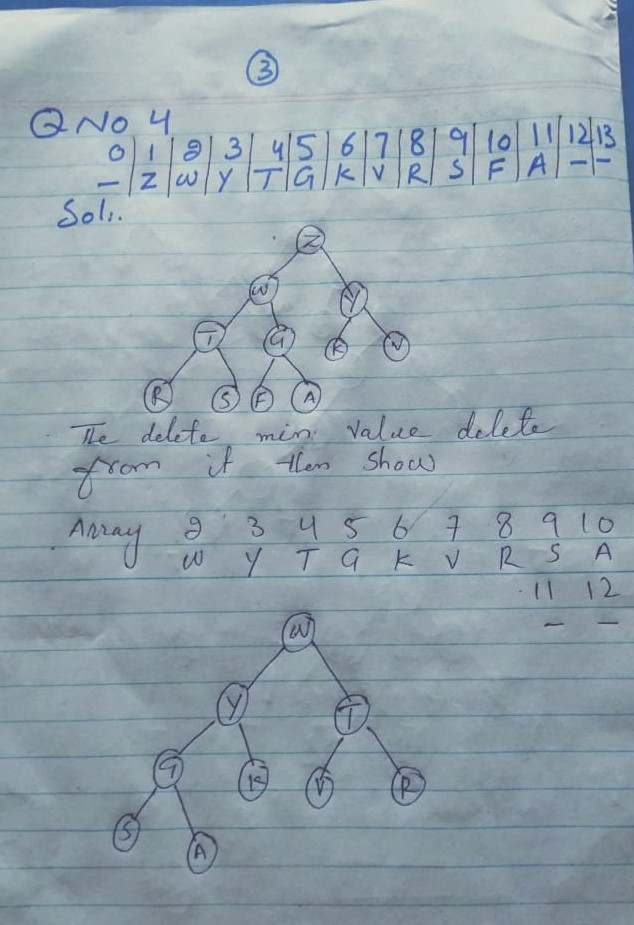 3
Q No 4
0 1 2 3 4 5 6 7 8 9 10 11 12 13
- Z W Y T G K V R S F A - -
Sol:.
Z
W Y
T G K V
R S F A
The delete min. value delete
from it then show
Array 2 3 4 5 6 7 8 9 10
W Y T G K V R S A
11 12
- -
W
Y T
G K V R
S A